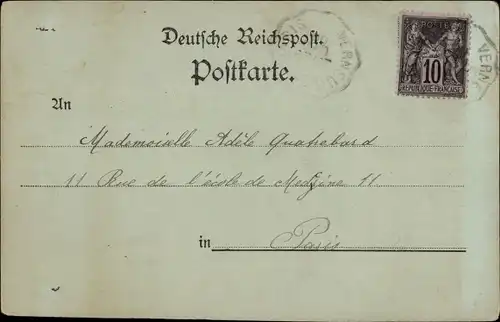 Deutsche Reichspost.
Postkarte.
POSTE
10
REPUBLIQUE FRANÇAISE
VERA
An Mademoiselle Adèle Quatrebard
11 Rue de l'école de Medecine 11
in Paris